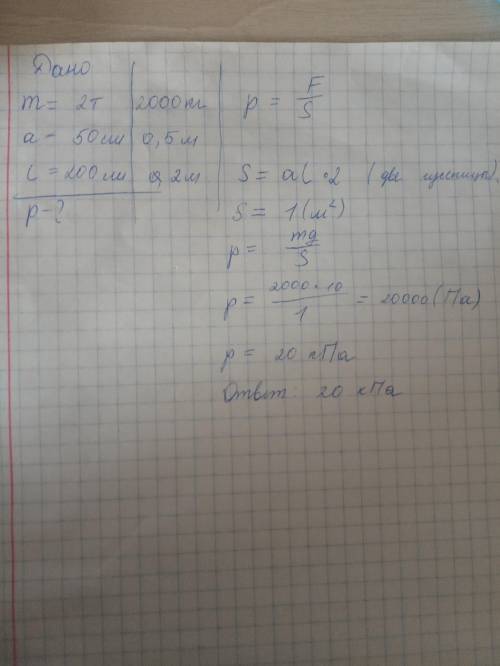 Дано
m = 2т | 2000кг | p = F/S
a - 50см | 0,5м
l = 200см | 0,2м | S = al · 2 (две гусеницы).
p - ? S = 1 (м²)
p = mg/S
p = 2000 · 10/1 = 20000 (Па)
p = 20 кПа
Ответ: 20 кПа